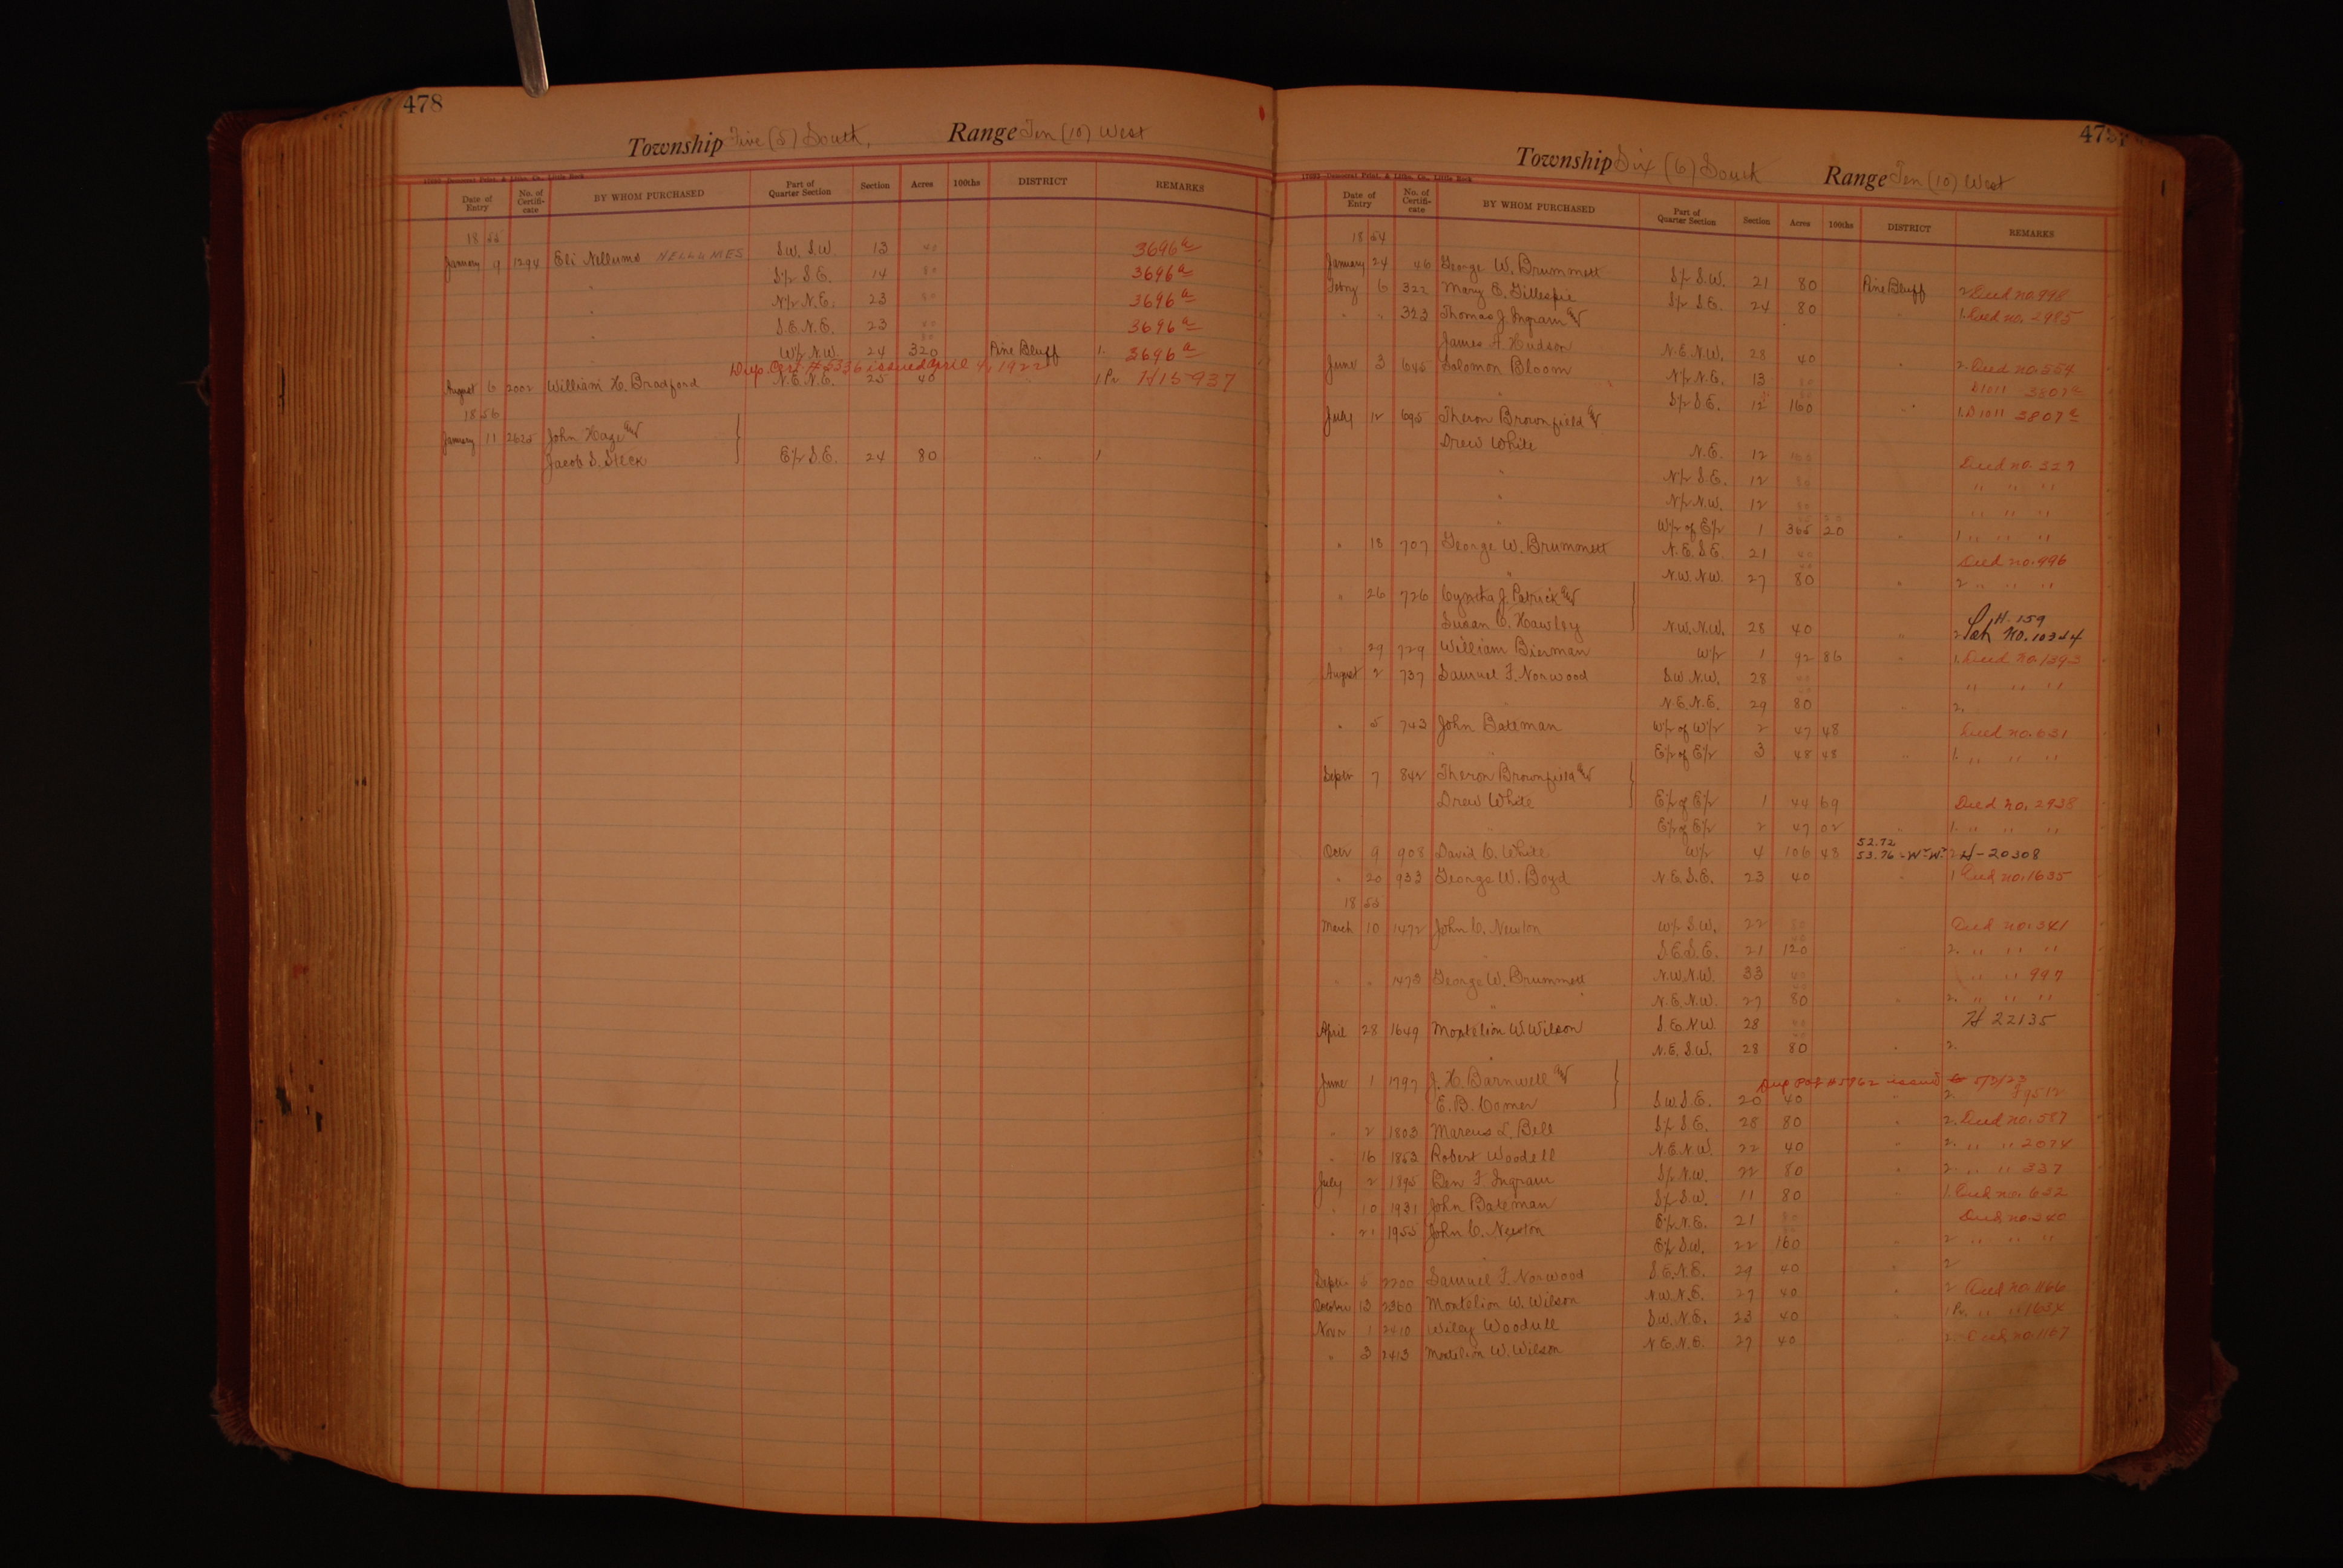 478
Township Five (5) South, Range Ten (10) West
Democrat Print. & Litho. Co., Little Rock
Date of Entry No. of Certifi-cate BY WHOM PURCHASED Part of Quarter Section Section Acres 100ths DISTRICT REMARKS
1855
January 9 1294 Eli Nellums NELLUMES S.W. S.W. 13 40 3696 a
" S½ S.E. 14 80 3696 a
" N½ N.E. 23 80 3696 a
" S.E. N.E. 23 40 3696 a
" W½ N.W. 24 320 Pine Bluff 1. 3696 a
Dup. Cert # 5336 issued April 4, 1922
August 6 2002 William H. Bradford N.E. N.E. 25 40 " 1 Pr H 15937
1856
January 11 2625 John Hage and
Jacob S. Steck E½ S.E. 24 80 " 1
Township Six (6) South Range Ten (10) West
Democrat Print. & Litho. Co., Little Rock
Date of Entry No. of Certifi-cate BY WHOM PURCHASED Part of Quarter Section Section Acres 100ths DISTRICT REMARKS
1854
January 24 46 George W. Brummett S½ S.W. 21 80 Pine Bluff 2 Deed no. 998
Febry 6 322 Mary E. Gillespie S½ S.E. 24 80 " 1. Deed no. 2985
" " 323 Thomas J. Ingram and
James A. Hudson N.E. N.W. 28 40 2 Deed no. 554
June 3 645 Solomon Bloom N½ N.E. 13 80 D1011 3807 a
" S½ S.E. 12 160 " 1. D1011 3807 a
July 12 695 Theron Brownfield and
Drew White N.E. 12 160 Deed no. 329
" N½ S.E. 12 80 " " "
" N½ N.W. 12 80 " " "
" W½ of E½ 1 365 20 " 1 " " "
" 18 707 George W. Brummett N.E. S.E. 21 40 Deed no. 996
" N.W. N.W. 27 80 " 2 " " "
" 26 726 Cyntha J. Patrick and
Susan C. Hawley N.W. N.W. 28 40 " 2 H. 159 no. 10344
" 29 729 William Bierman W½ 1 92 86 " 1. Deed no. 1393
August 2 737 Samuel F. Norwood S.W. N.W. 28 40 " " "
N.E. N.E. 29 80 " 2.
" 5 743 John Bateman W½ of W½ 2 47 48 Deed no. 631
" E½ of E½ 3 48 48 " 1. " " "
Septr 7 842 Theron Brownfield and
Drew White E½ of E½ 1 44 69 Deed no. 2938
" E½ of E½ 2 47 02 " 1. " " "
52.72
Octr 9 908 David C. White W½ 4 106 48 53.76 - W½ W½ 2 H-20308
" 20 933 George W. Boyd N.E. S.E. 23 40 " 1 Deed no. 1635
1855
March 10 1472 John C. Newton W½ S.W. 22 80 Deed no. 341
" S.E. S.E. 21 120 " 2. " " "
" " 1473 George W. Brummett N.W. N.W. 33 40 " " 997
" N.E. N.W. 27 80 " 2. " " "
April 28 1649 Montelion W. Wilson S.E. N.W. 28 40 H 22135
" N.E. S.W. 28 80 " 2.
June 1 1797 J. H. Barnwell and
E. B. Comer S.W. S.E. 20 40 " 2.
" 2 1803 Marcus L. Bell S½ S.E. 28 80 " 2. Deed no. 587
" 16 1853 Robert Woodell N.E. N.W. 22 40 " 2. " " 2074
July 2 1895 Ben F. Ingram S½ N.W. 22 80 " 2. " " 337
" 10 1931 John Bateman S½ S.W. 11 80 " 1. Deed no. 632
" 21 1955 John C. Newton E½ N.E. 21 80 Deed no. 340
" E½ S.W. 22 160 " 2 " " "
Septr 5 2200 Samuel F. Norwood S.E. N.E. 29 40 " 2
October 13 2360 Montelion W. Wilson N.W. N.E. 27 40 " 2 Deed no. 1166
Novr 1 2410 Wiley Woodull S.W. N.E. 23 40 " 1 Pr. " " 1634
" 3 2413 Montelion W. Wilson N.E. N.E. 27 40 " 2. Deed no. 1167